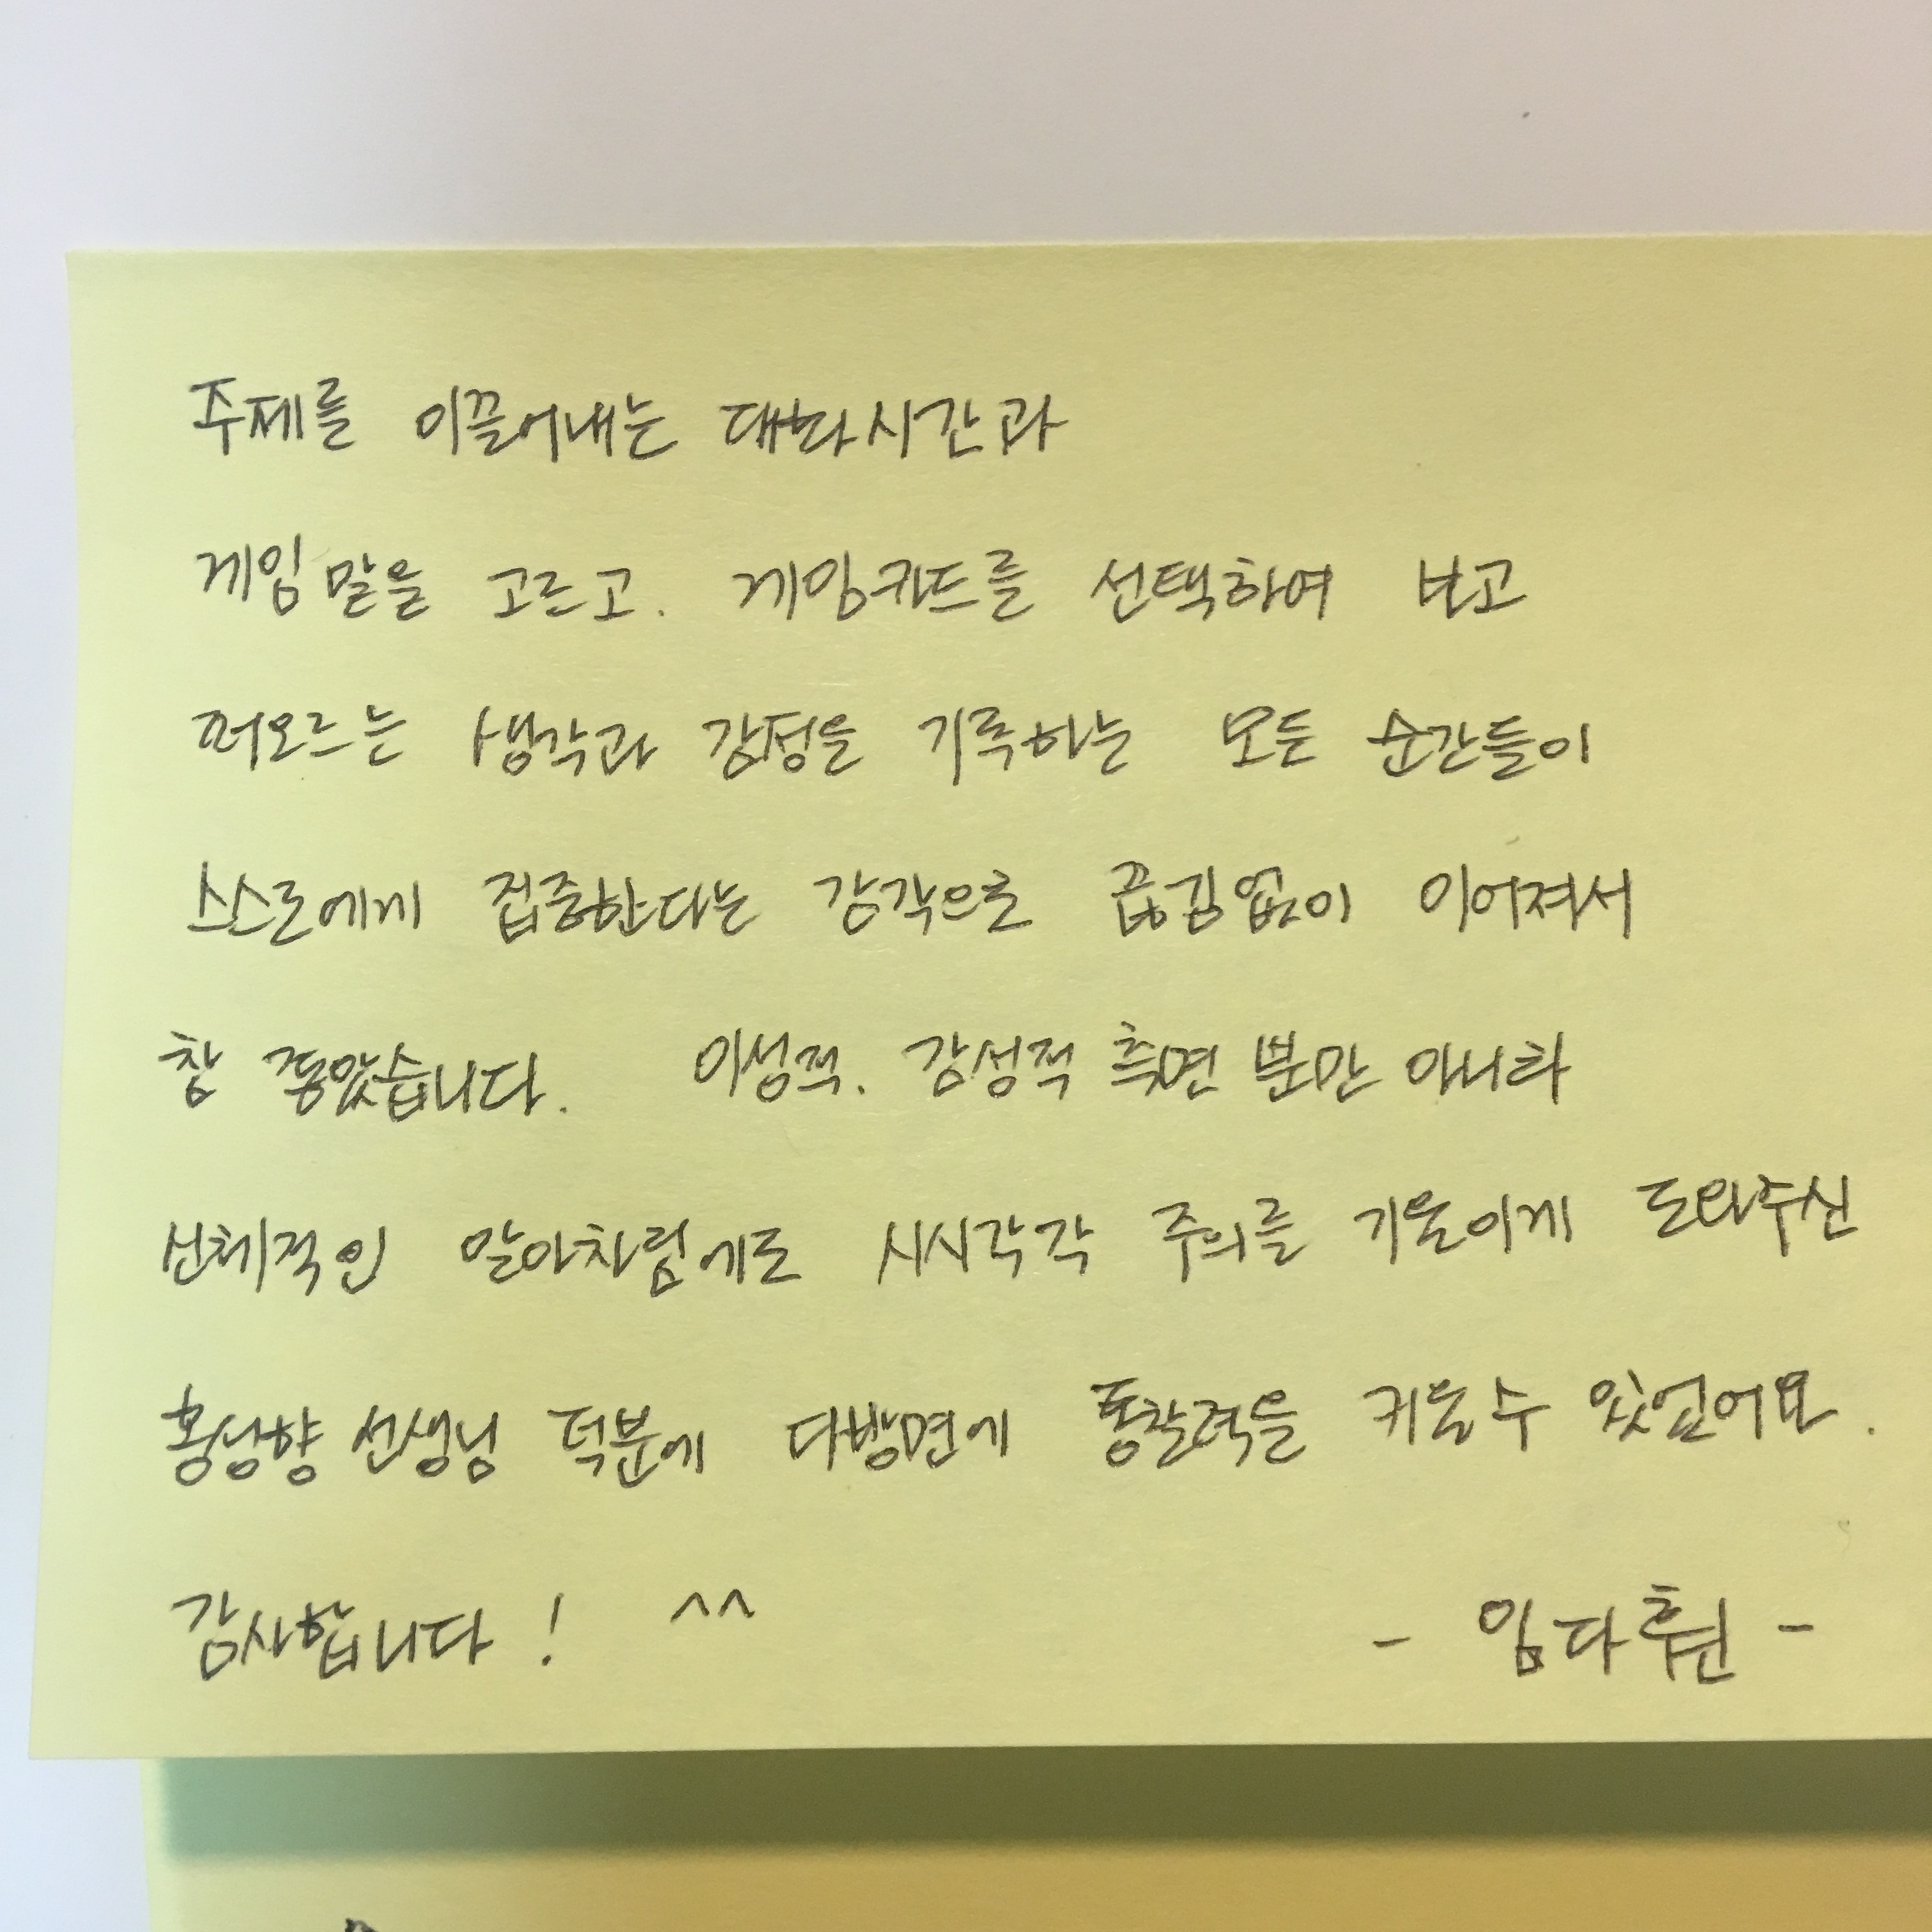 주제를 이끌어내는 대화시간과
게임말을 고르고. 게임카드를 선택하여 보고
떠오르는 생각과 감정을 기록하는 모든 순간들이
스스로에게 집중한다는 감각으로 끊김없이 이어져서
참 좋았습니다. 이성적. 감성적 측면 뿐만 아니라
신체적인 알아차림에도 시시각각 주의를 기울이게 도와주신
홍성향 선생님 덕분에 다방면에 통찰력을 키울 수 있었어요.
감사합니다! ^^ - 임다훤 -